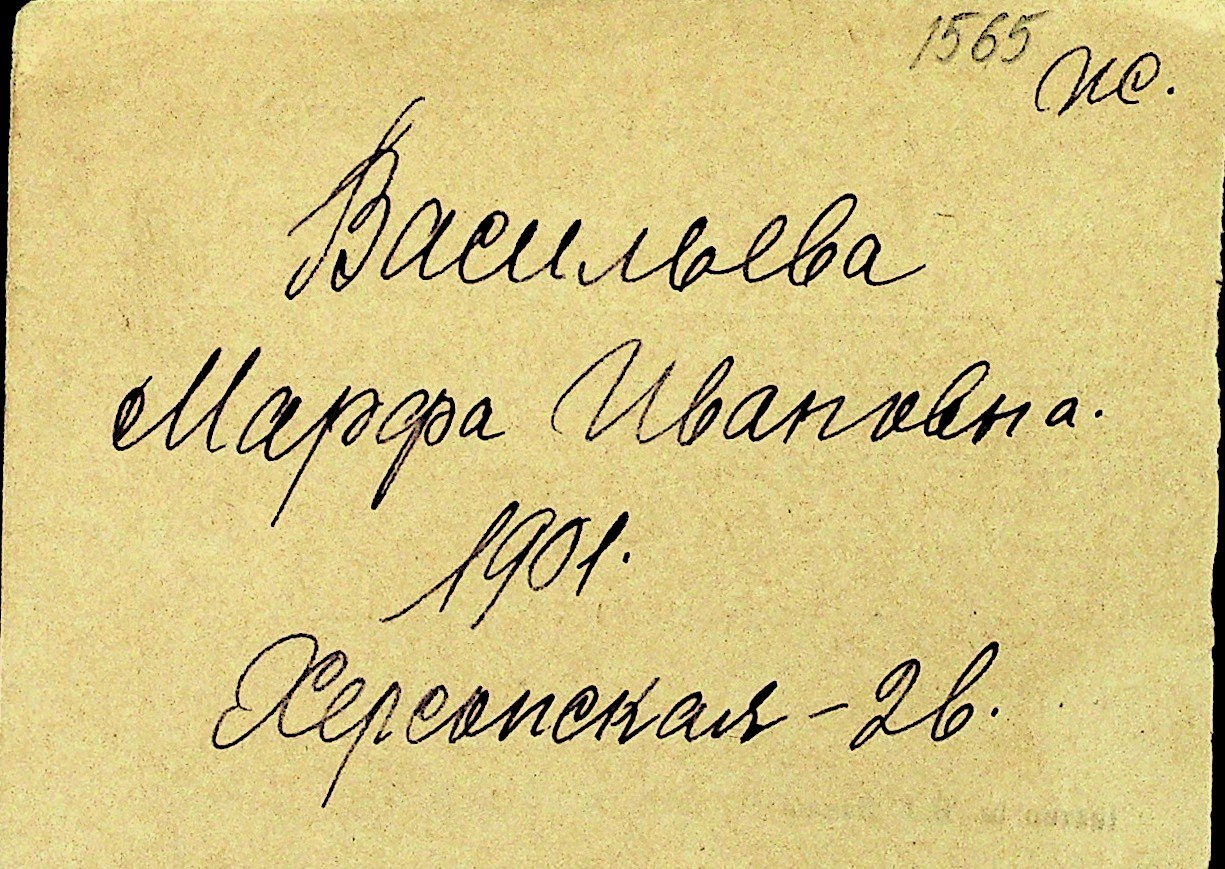 1565 ис.
Васильева
Марфа Ивановна.
1901.
Херсонская - 2в.